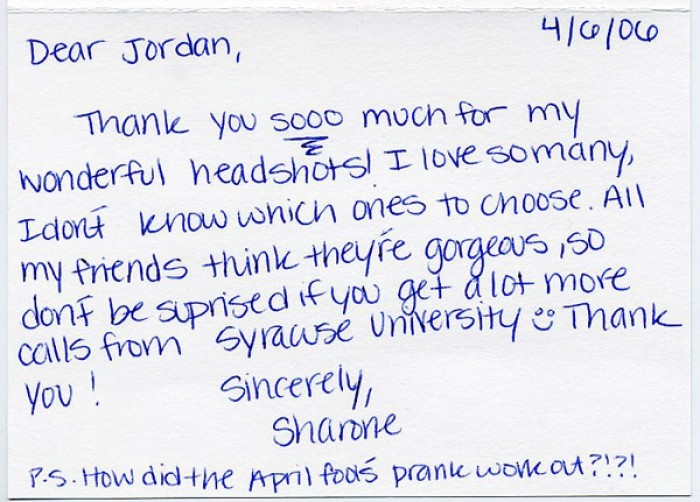 4/6/06
Dear Jordan,
Thank you sooo much for my
wonderful headshots! I love so many,
I don't know which ones to choose. All
my friends think they're gorgeous, so
don't be suprised if you get a lot more
calls from Syracuse University ☺ Thank
you! Sincerely,
Sharone
P.S. How did the April fool's prank work out?!?!